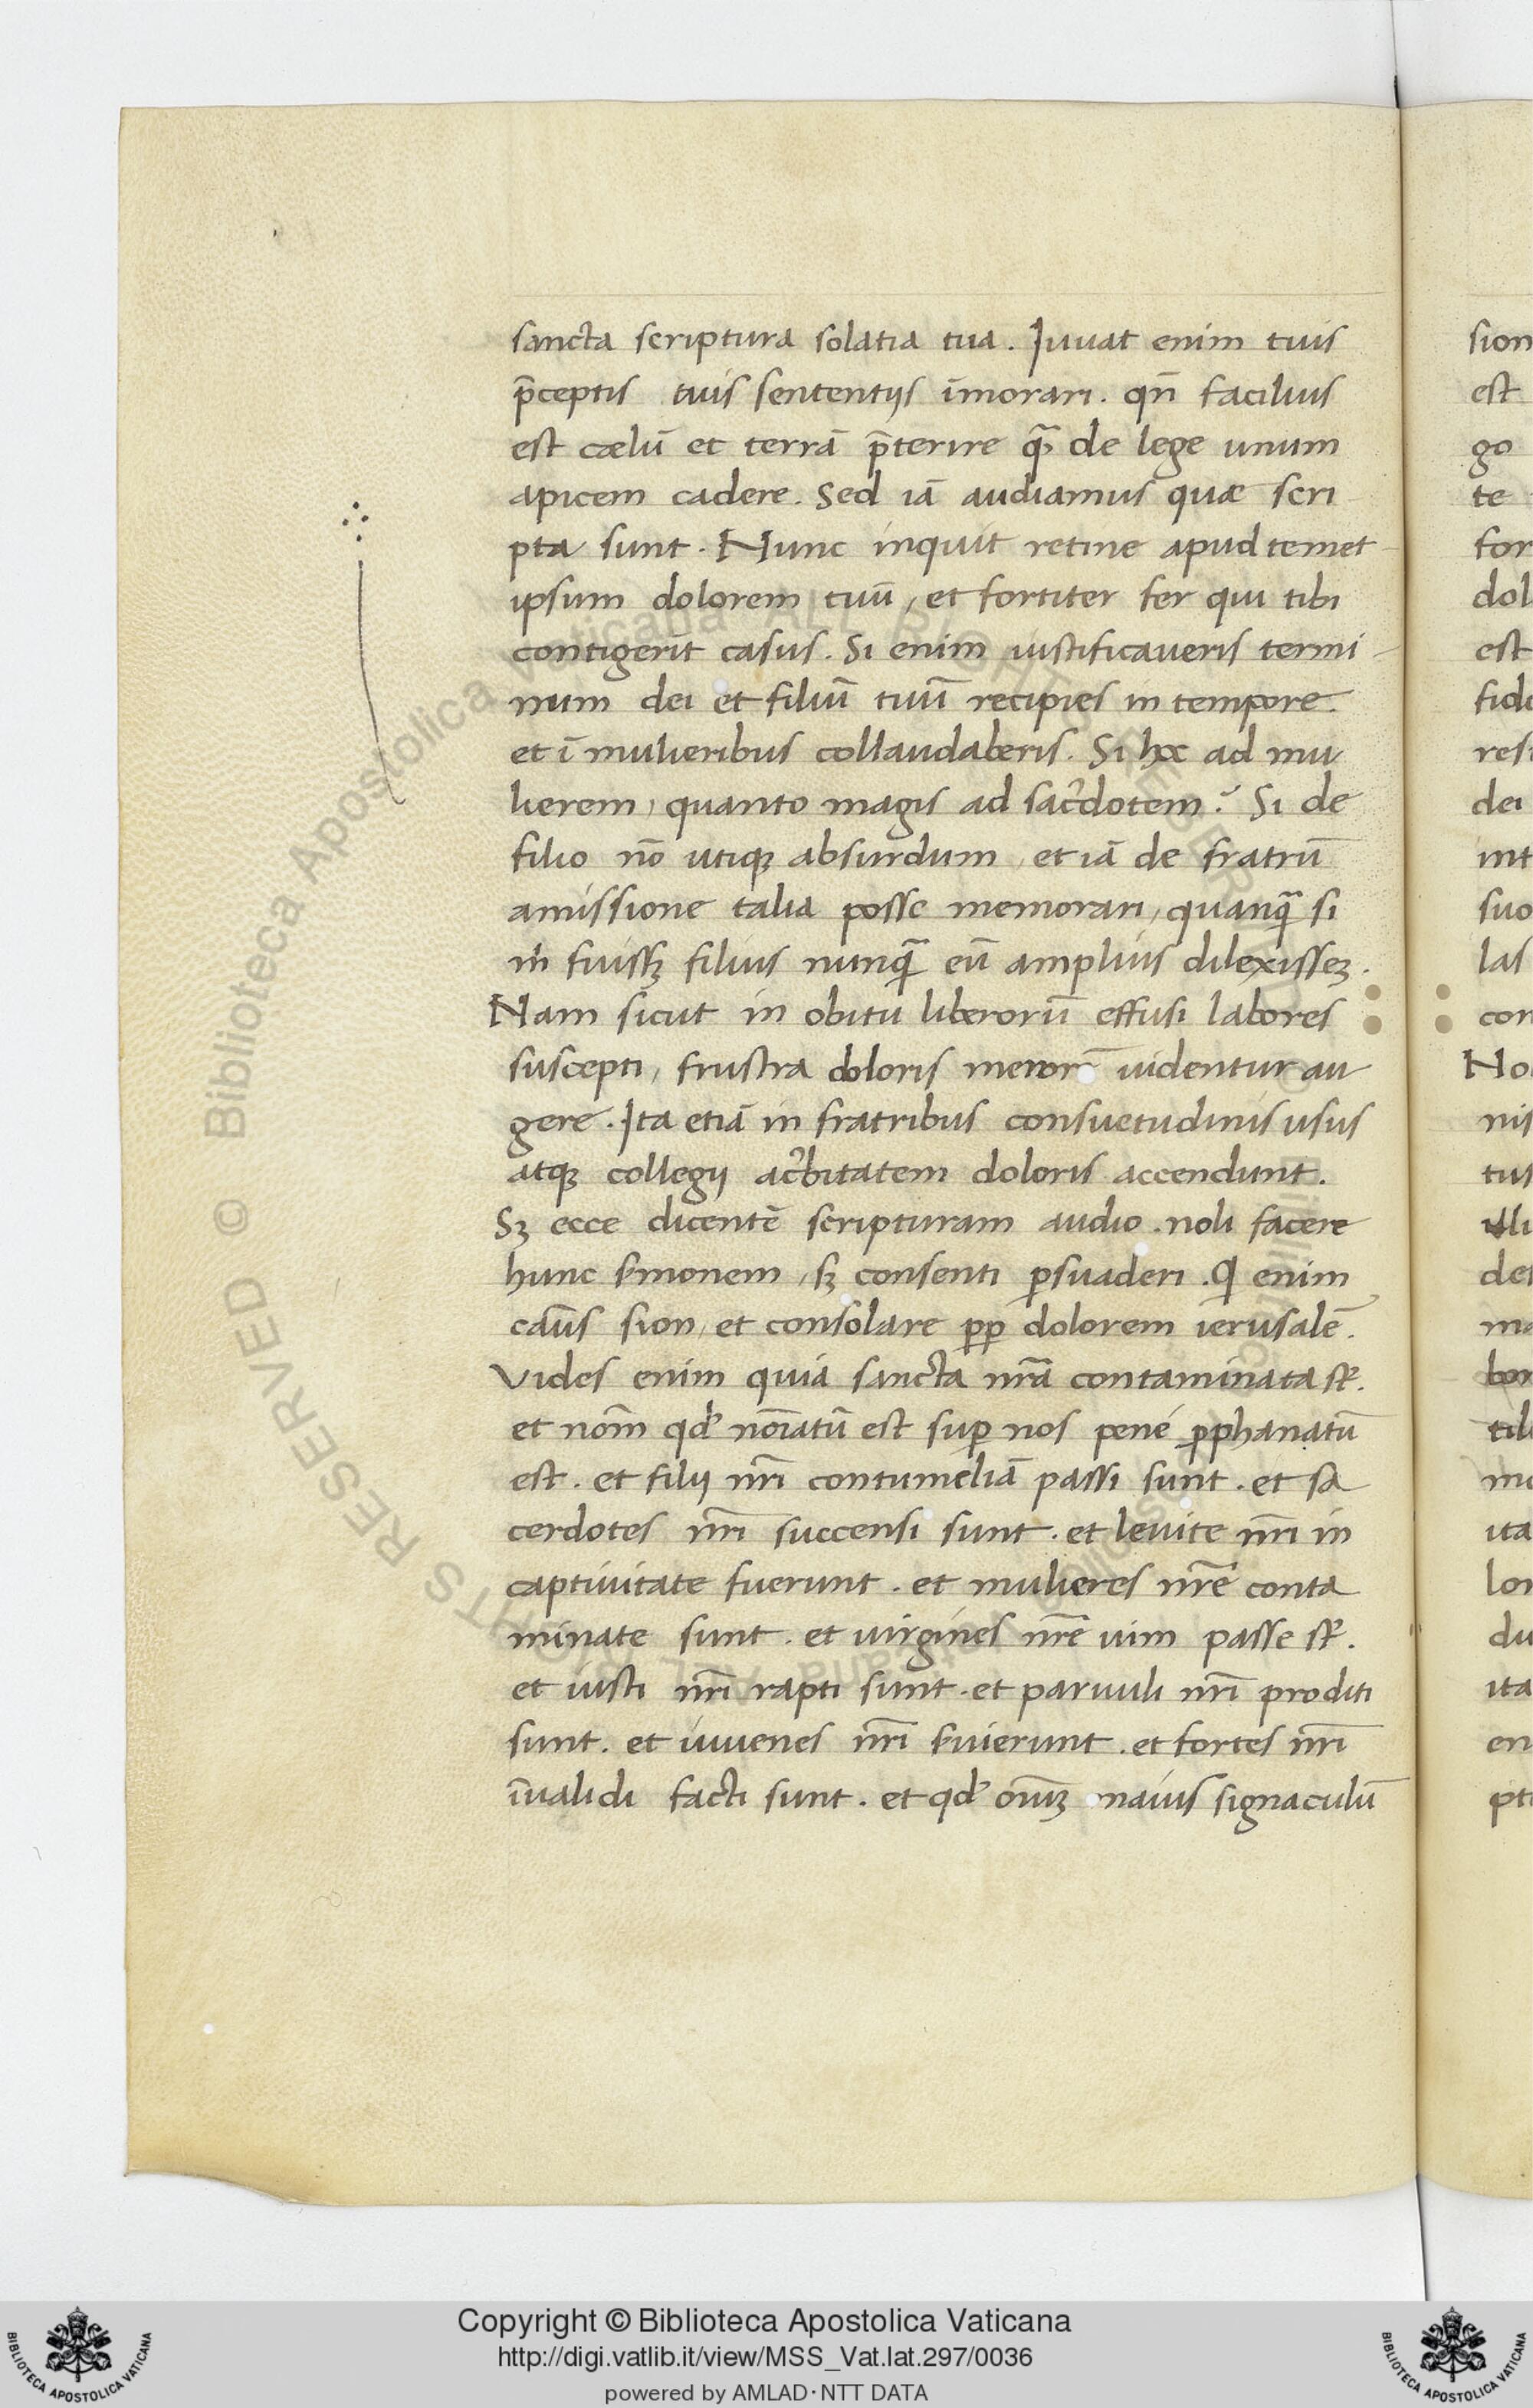 sancta scriptura solatia tua . Iuuat enim tuis
p̄ceptis tuis sententijs īmorari . qn̄ facilius
est cælū et terrā p̄terire quā de lege unum
apicem cadere . Sed iā audiamus quæ scri
pta sunt . Nunc inquit retine apud temet-
ipsum dolorem tuū , et fortiter fer qui tibi
contigerīt casus . Si enim iustificaueris termi-
num dei et filiū tuū recipies in tempore .
et ī mulieribus collaudaberis . Si hæc ad mu
lierem , quanto magis ad sac̄dotem ? Si de
filio nō utiqꝫ absurdum , et iā de fratrū
amissione talia posse memorari , quanꝗ̄ si
m̄ fuissꝫ filius nunꝗ̄ eū amplius dilexissеꝫ .
Nam sicut in obitu liberorū effusi labores
suscepti , frustra doloris uidentur au
gere . Ita etiā in fratribus consuetudinis usus
atqꝫ collegij ac̄bitatem doloris accendunt .
Sꝫ ecce dicentē scripturam audio . noli facere
hunc ẜmonem , sꝫ consenti ꝑsuaderi . Qͥ enim
cāus sion , et consolare ꝓꝑ dolorem ierusalē .
Vides enim quia sancta nr̄a contaminata st̄ .
et nom̄ qđ noīatū est suꝑ nos pene ꝓphanatū
est . et filij nr̄i contumeliā passi sunt . et sa
cerdotes nr̄i succensi sunt . et leuite nr̄i in
captiuitate fuerunt . et mulieres nr̄e conta
minate sunt . et uirgines nr̄e uim passe st̄ .
et iusti nr̄i rapti sunt . et paruuli nr̄i proditi
sunt . et iuuenes nr̄i ẜuierunt . et fortes nr̄i
īualidi facti sunt . et qđ oīuꝫ maius signaculū
sion
est
go
te
for
dol
est
fid
res
dei
int
suo
las
con
No
nis
tus
illi
de
ma
bon
til
mo
ita
lon
du
ita
en
pt
© Biblioteca Apostolica Vaticana ALL RIGHTS RESERVED
Copyright © Biblioteca Apostolica Vaticana
http://digi.vatlib.it/view/MSS_Vat.lat.297/0036
powered by AMLAD·NTT DATA
BIBLIOTECA APOSTOLICA VATICANA
BIBLIOTECA APOSTOLICA VATICANA